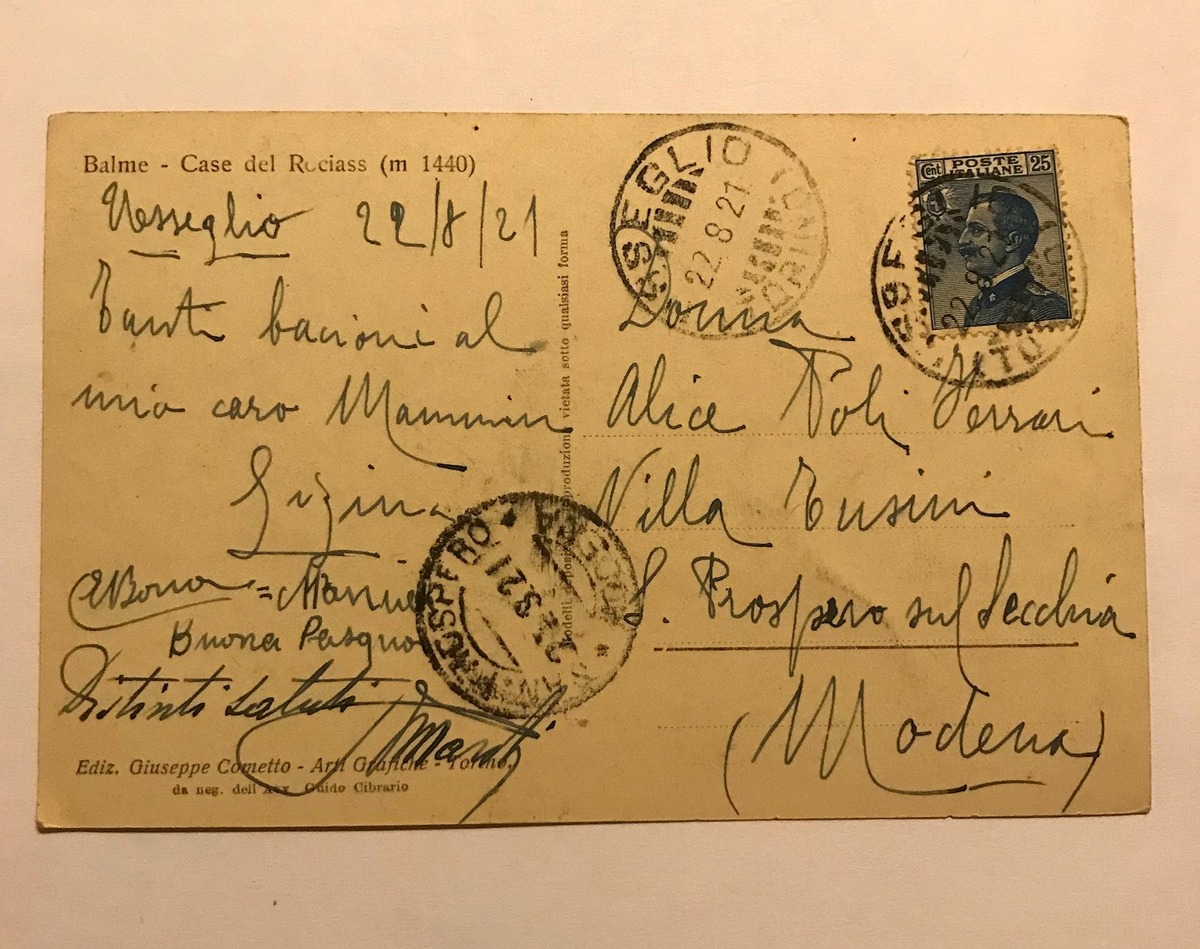 Balme - Case del Rociass (m 1440)
Usseglio 22/8/21
Tanti bacioni al
mio caro Mammin
Gigina
Buona Pasqua
Distinti saluti
Ediz. Giuseppe Cometto - Arti Grafiche - Torino.
da neg. dell'Avv. Guido Cibrario
riproduzione vietata sotto qualsiasi forma
USSEGLIO TORINO
22.8.21
POSTE
ITALIANE
Cent 25
USSEGLIO
22.8.21
Donna
Alice Poli Ferrari
Villa Tusini
S. Prospero sul Secchia
(Modena)
S. PROSPERO
MODENA